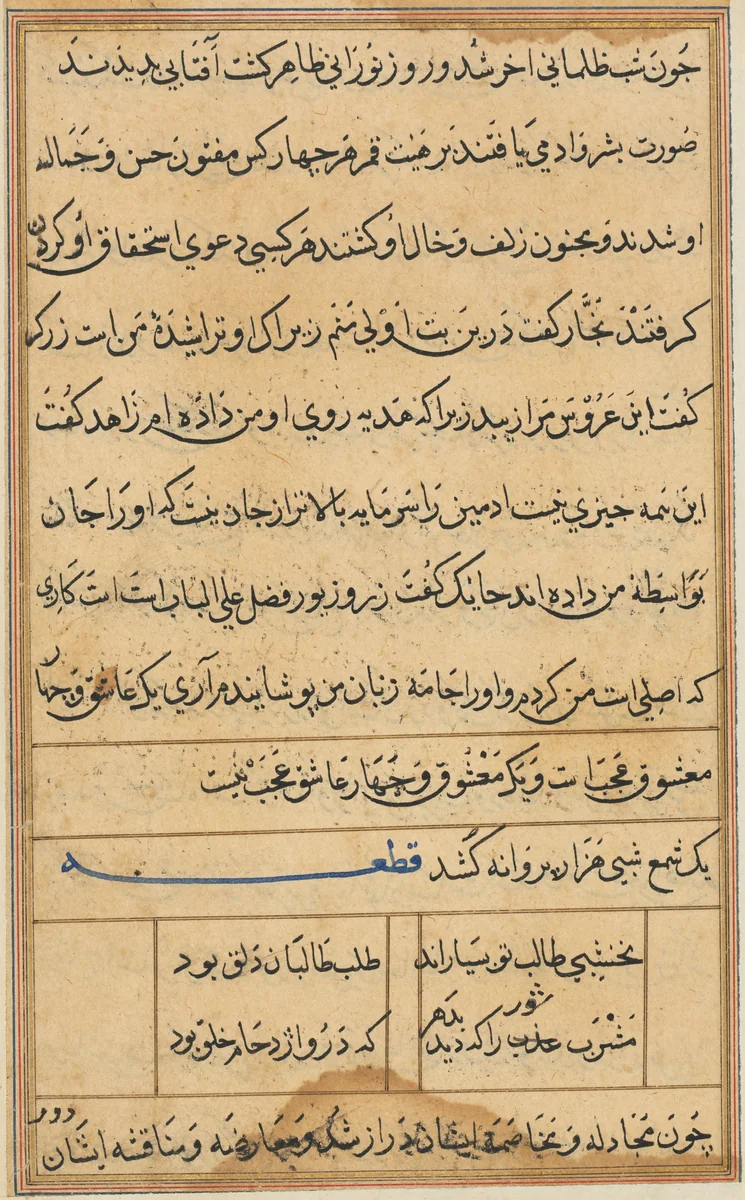 چون شب ظلمانی اخر شد و روز نورانی ظاهر کشت آفتابی بدیدند
صورت بشر و ادمی یافتند بر هیئت قمر هر چهار کس مفتون حسن و جمال
او شدند و مجنون زلف و خال او کشتند هر کسی دعوی استحقاق او کردن
کرفتند نجّار کفت درین بت اولی منم زیراک او تراشیدهٔ من است زرکر
کفت این عروس مرا زیبد زیرا که هدیه روی او من داده ام زاهد کفت
این همه چیزی نیست ادمین را سرمایه بالاتر از جان نیست که او را جان
بواسطه من داده اند حانک کفت زر و زیور فضل علی الباب است است کاری
که اصلی است من کردم و او را جامه زنان من پوشانیدم آری یک عاشق و چهار
معشوق عجب است و یک معشوق و چهار عاشق عجب نیست
یک شمع شبی هزار پروانه کُشد قطعه
نخشبی طالب تو بسیاراند طلب طالبان دلق بود
مشرب عذب را که دید بدهر شور که درو ازدحام خلق بود
چون مجادله و مخاصمه ایشان دراز شد و معارضه و مناقشه ایشان دور